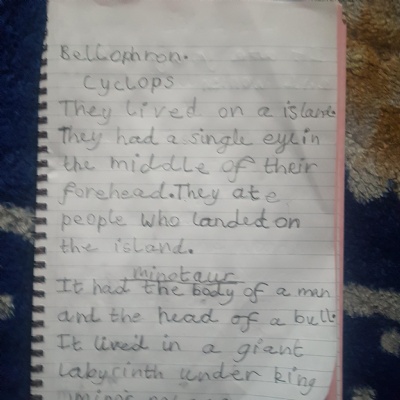 Bellophron.
Cyclops
They lived on a island.
They had a single eye in
the middle of their
forehead. They ate
people who landed on
the island.
minotaur
It had the body of a man
and the head of a bull.
It lived in a giant
Labyrinth under king